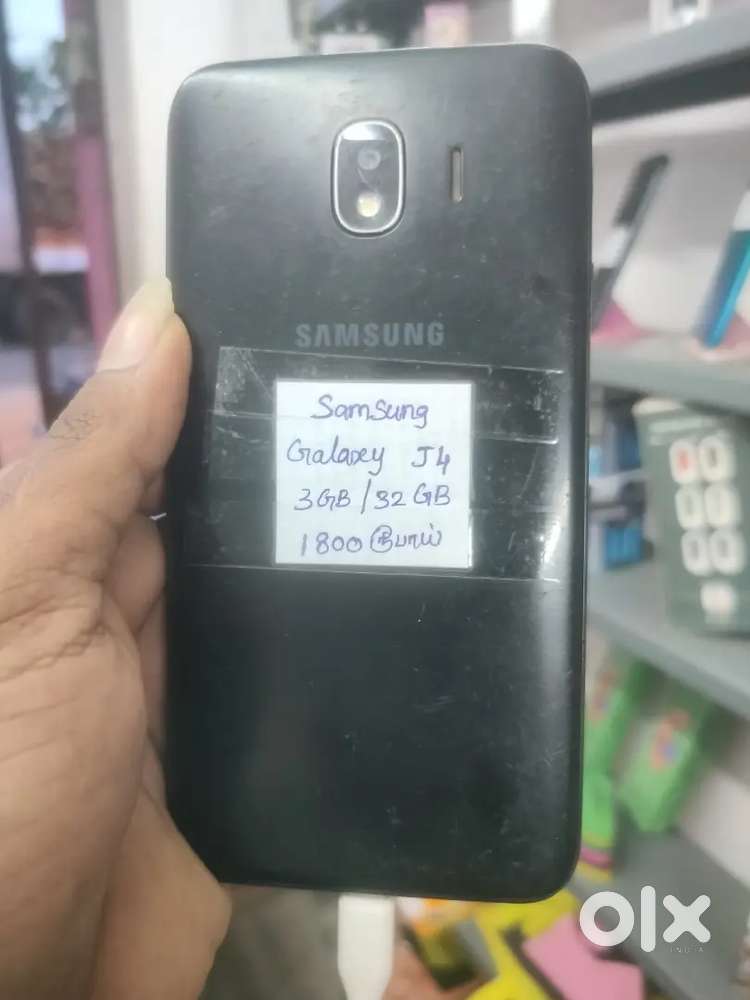 SAMSUNG
Samsung
Galaxey J4
3GB/32GB
1800 ரூபாய்
olx
INDIA